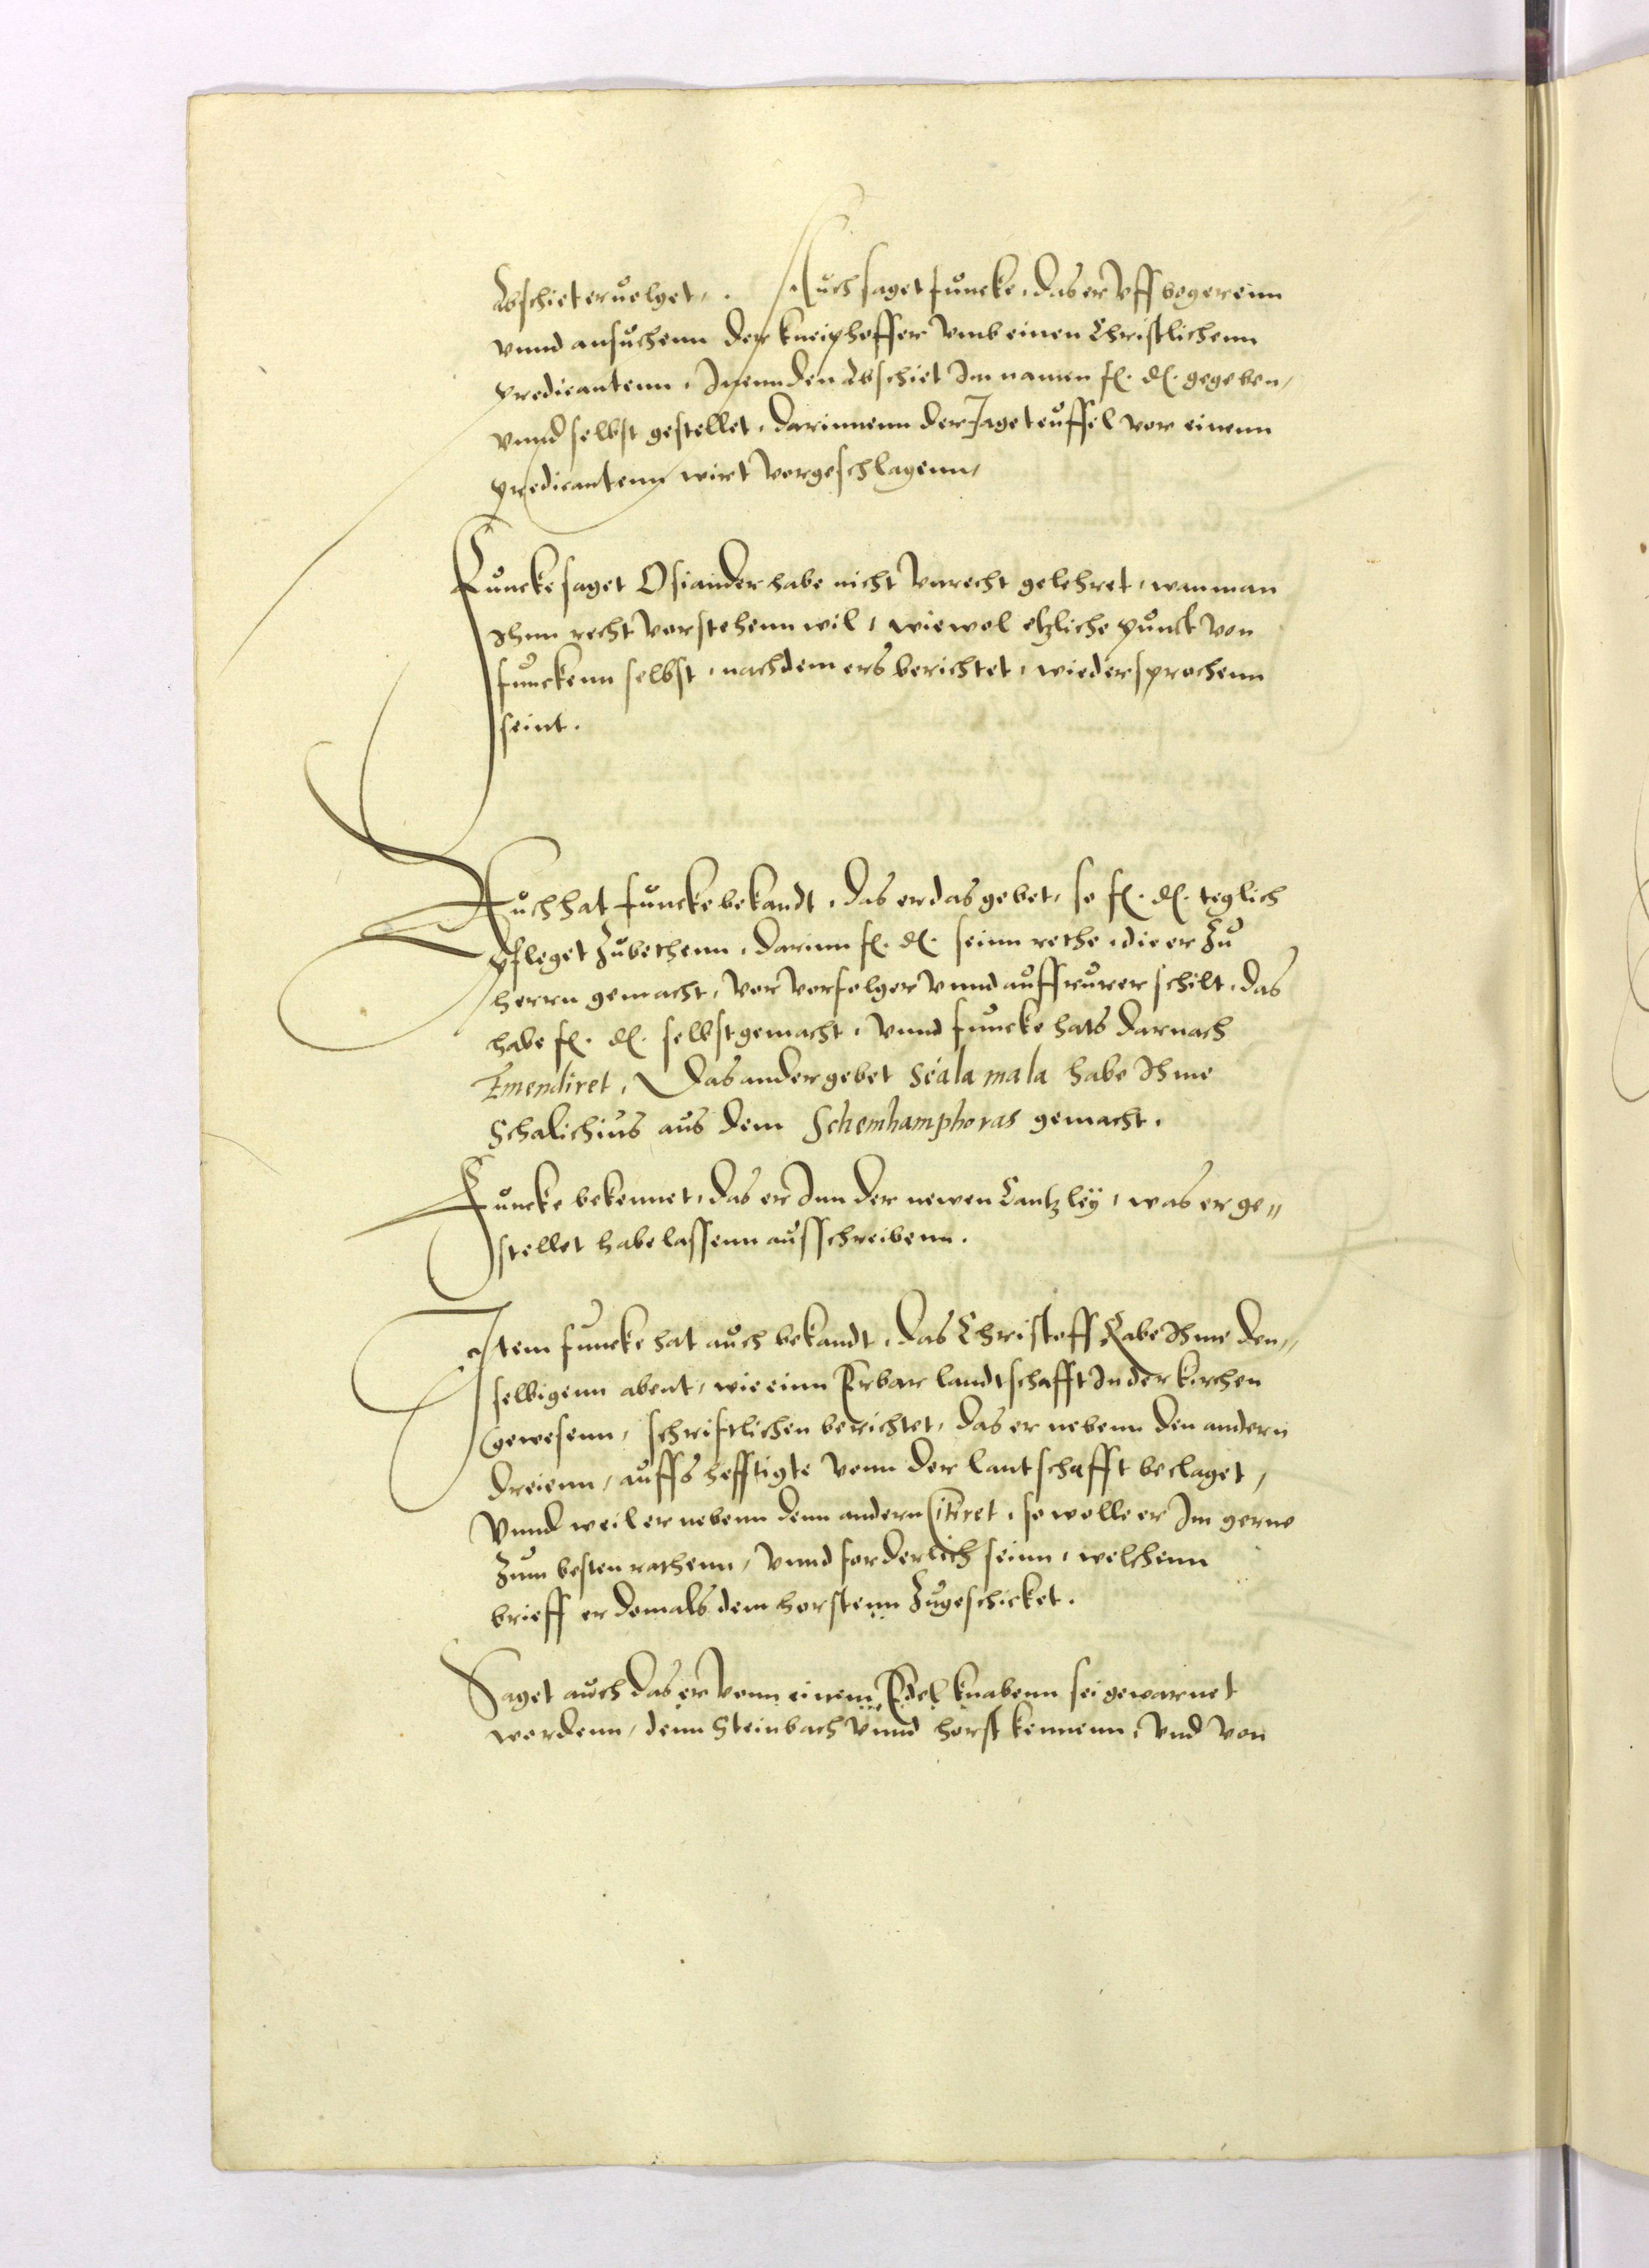 Abschiet eruolget,. Auch saget Funcke, das er Vff begerenn
vnnd ansuchenn der Kneiphoffer Vmb einen Christlichenn
predicantenn, Inenn den Abschiet Im namen f. d. gegeben,
vnnd selbst gestellet, darinnenn der Jageteuffel vor einenn
predicantenn wirt Vorgeschlagenn,
Funcke saget Osiander habe nicht Vnrecht gelehret, wan man
Ihnn recht Vorstehenn wil, wiewol etzliche punckt von
Funckenn selbst, nachdem ers berichtet, wiedersprochenn
seint.
Auch hat Funcke bekandt, das er das gebet, so f. d. teglich
pfleget Zubethenn, darinn f. d. seinn rethe, die er Zu
herrn gemacht, vor Vorfolger Vnnd auffrurer schilt, das
habe f. d. selbst gemacht, Vnnd Funcke hats darnach
Emendiret, Das ander gebet Scala mala habe Ihme
Schalichius aus dem Schemhamphoras gemacht.
Funcke bekennet, das er Inn der newen Cantzleÿ, was er ge„
stellet habe lassenn ausschreibenn.
Item Funcke hat auch bekandt, das Christoff Rabe Ihme den„
selbigenn abent, wie einn Erbar landtschafft In der kirchen
gewesenn, schriftlichen berichtet, das er nebenn den andern
dreienn, auffs hefftigte vonn der lantschafft beclaget,
Vnnd weil er nebenn denn andern Citiret, so wolle er Im gerne
Zum besten rathenn, Vnnd forderlich seinn, welchenn
brieff er domals dem horstenn Zugeschicket.
Saget auch das er vonn einem Edel knabenn sei gewarnet
wordenn, denn Steinbach Vnnd horst kennenn, Vnd von